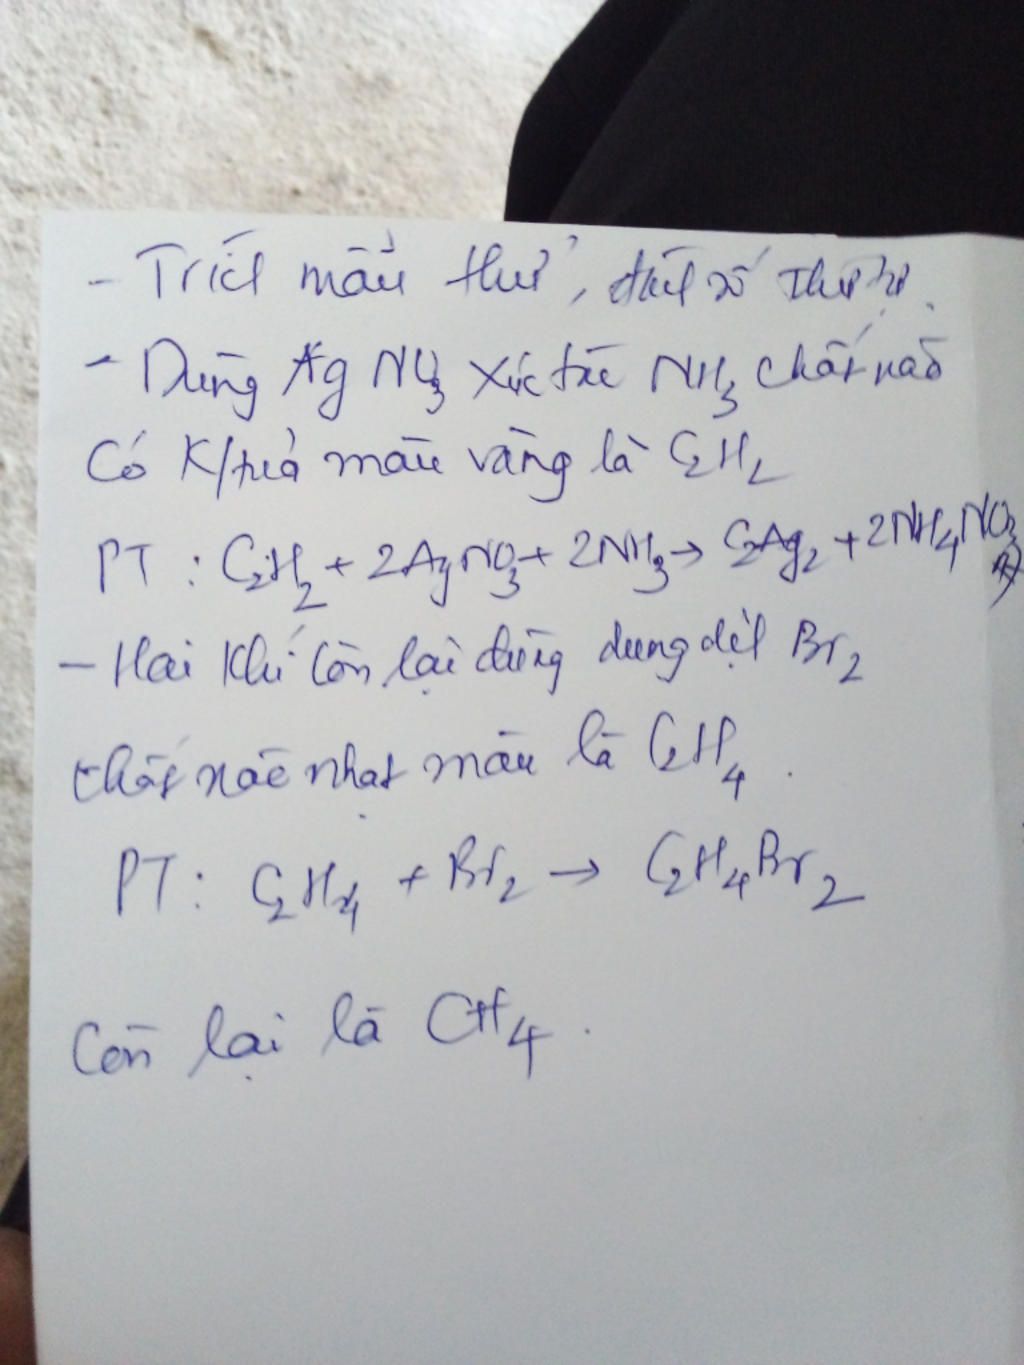 - Trích mẫu thử, đánh số thứ tự.
- Dùng AgNO3 xúc tác NH3 chất nào
Có K/tủa màu vàng là C2H2
PT : C2H2 + 2AgNO3 + 2NH3 → C2Ag2 + 2NH4NO3
- Hai khí còn lại dùng dung dịch Br2
chất nào nhạt màu là C2H4.
PT: C2H4 + Br2 → C2H4Br2
Còn lại là CH4.